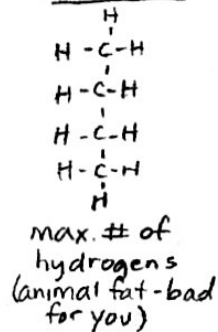 H
H-C-H
H-C-H
H-C-H
H-C-H
H
max. # of
hydrogens
(animal fat-bad
for you)